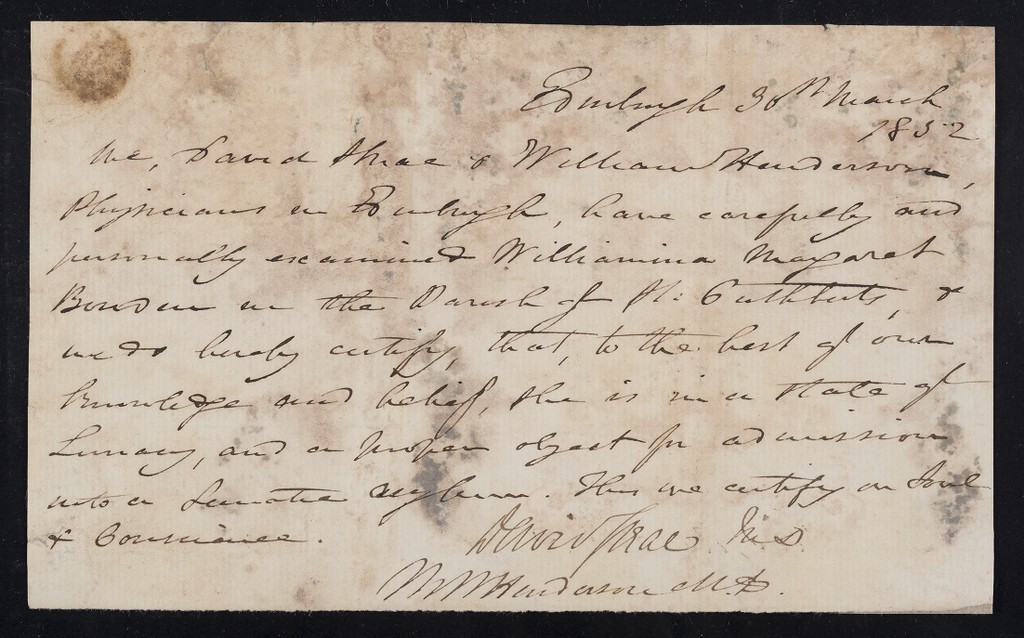 Edinburgh 30th March
1852
We, David & William Henderson,
Physicians in Edinburgh, have carefully and
personally examined Williamina Margaret
Bowden in the Parish of St: Cuthberts, &
we do hereby certify, that, to the best of our
knowledge and belief, she is in a state of
Lunacy, and a proper object for admission
into a Lunatic asylum. This we certify on Soul
& Conscience.
David M.D.
Wm Henderson M.D.